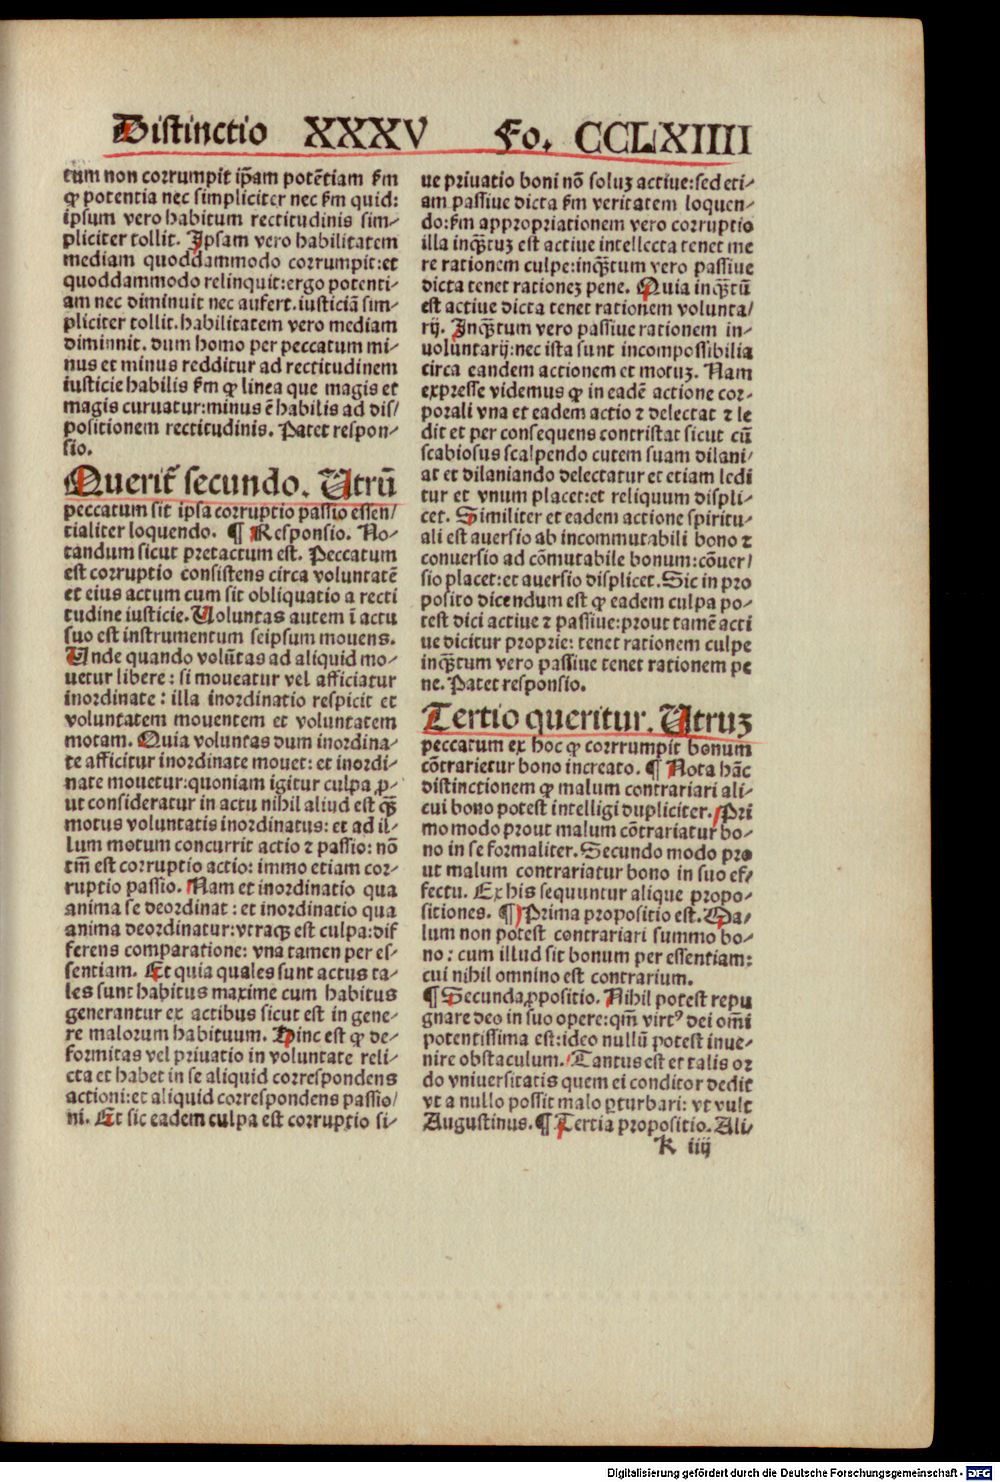 Distinctio XXXV Fo. CCLXIIII
tum non corrumpit ip̄am potētiam ẜm
ꝙ potentia nec simpliciter nec ẜm quid:
ipsum vero habitum rectitudinis sim-
pliciter tollit. Ipsam vero habilitatem
mediam quoddammodo corrumpit:et
quoddammodo relinquit:ergo potenti-
am nec diminuit nec aufert.iusticiā sim-
pliciter tollit.habilitatem vero mediam
diminnit. dum homo per peccatum mi-
nus et minus redditur ad rectitudinem
iusticie habilis ẜm ꝙ linea que magis et
magis curuatur:minus ē habilis ad dis/
positionem rectitudinis. Patet respon-
sio.
Querit̄ secundo. Utrū
peccatum sit ipsa corruptio passio essen/
tialiter loquendo. ¶ Responsio. No-
tandum sicut pretactum est. Peccatum
est corruptio consistens circa voluntatē
et eius actum cum sit obliquatio a recti
tudine iusticie. Uoluntas autem ī actu
suo est instrumentum seipsum mouens.
Unde quando volūtas ad aliquid mo-
uetur libere: si moueatur vel afficiatur
inordinate: illa inordinatio respicit et
voluntatem mouentem et voluntatem
motam. Quia voluntas dum inordina-
te afficitur inordinate mouet: et inordi-
nate mouetur:quoniam igitur culpa ꝓ-
ut consideratur in actu nihil aliud est qꝫ̄
motus voluntatis inordinatus: et ad il-
lum motum concurrit actio ⁊ passio: nō
tm̄ est corruptio actio: immo etiam cor-
ruptio passio. Nam et inordinatio qua
anima se deordinat: et inordinatio qua
anima deordinatur:vtraqꝫ est culpa:dif
ferens comparatione: vna tamen per es-
sentiam. Et quia quales sunt actus ta-
les sunt habitus maxime cum habitus
generantur ex actibus sicut est in gene-
re malorum habituum. Hinc est ꝙ de-
formitas vel priuatio in voluntate reli-
cta et habet in se aliquid correspondens
actioni:et aliquid correspondens passio/
ni. Et sic eadem culpa est corruptio si-
ue priuatio boni nō soluꝫ actiue:sed eti-
am passiue dicta ẜm veritatem loquen-
do:ẜm appropriationem vero corruptio
illa inqꝫ̄tuꝫ est actiue intellecta tenet me
re rationem culpe:inqꝫ̄tum vero passiue
dicta tenet rationeꝫ pene. Quia inqꝫ̄tū
est actiue dicta tenet rationem volunta/
rij. Inqꝫ̄tum vero passiue rationem in-
uoluntarij:nec ista sunt incompossibilia
circa eandem actionem et motuꝫ. Nam
expresse videmus ꝙ in eadē actione cor-
porali vna et eadem actio ⁊ delectat ⁊ le
dit et per consequens contristat sicut cū
scabiosus scalpendo cutem suam dilani-
at et dilaniando delectatur et etiam ledi
tur et vnum placet:et reliquum displi-
cet. Similiter et eadem actione spiritu-
ali est auersio ab incommutabili bono ⁊
conuersio ad cōmutabile bonum:cōuer/
sio placet:et auersio displicet. Sic in pro
posito dicendum est ꝙ eadem culpa po-
test dici actiue ⁊ passiue:prout tamē acti
ue dicitur proprie: tenet rationem culpe
inqꝫ̄tum vero passiue tenet rationem pe
ne. Patet responsio.
Tertio queritur. Utruꝫ
peccatum ex hoc ꝙ corrrumpit bonum
cōtrarietur bono increato. ¶ Nota hāc
distinctionem ꝙ malum contrariari ali-
cui bono potest intelligi dupliciter. Pri
mo modo prout malum cōtrariatur bo-
no in se formaliter. Secundo modo pro
ut malum contrariatur bono in suo ef/
fectu. Ex his sequuntur alique propo-
sitiones. ¶ Prima propositio est. Ma/
lum non potest contrariari summo bo-
no: cum illud sit bonum per essentiam:
cui nihil omnino est contrarium.
¶ Secunda ꝓpositio. Nihil potest repu
gnare deo in suo opere:qm̄ virtꝰ dei om̄i
potentissima est:ideo nullū potest inue-
nire obstaculum. Tantus est et talis or
do vniuersitatis quem ei conditor dedit
vt a nullo possit malo ꝑturbari: vt vult
Augustinus. ¶ Tertia propositio. Ali/
K iiij
Digitalisierung gefördert durch die Deutsche Forschungsgemeinschaft - DFG